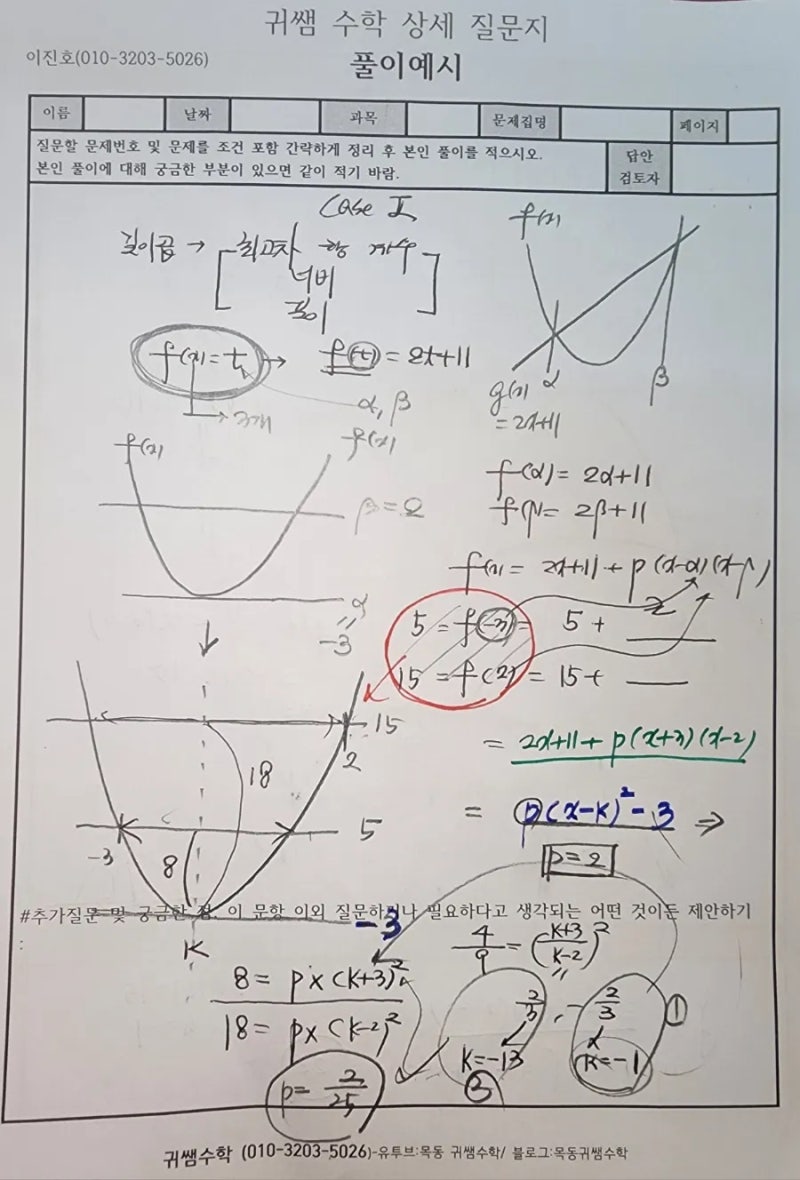 귀쌤 수학 상세 질문지
이진호(010-3203-5026)
풀이예시
이름 날짜 과목 문제집명 페이지
질문할 문제번호 및 문제를 조건 포함 간략하게 정리 후 본인 풀이를 적으시오.
본인 풀이에 대해 궁금한 부분이 있으면 같이 적기 바람.
답안
검토자
Case I
f(x)
길이곱 → 최고차 항 계수
너비
f(x)=t, → f(t) = 2t+11
α, β
→ 3개
g(x) α β
= 2x+11
f(x) f(x)
β = 2
α
=
-3
f(α) = 2α+11
f(β)= 2β+11
f(x) = 2x+11 + p(x-α)(x-β)
5 = f(-3) = 5 +
15 = f(2) = 15+
= 2x+11 + p(x+3)(x-2)
= p(x-k)² - 3 ⇒
p=2
15
2
18
5
-3
8
-3
#추가질문 및 궁금한 점, 이 문항 이외 질문하거나 필요하다고 생각되는 어떤 것이든 제안하기
:
K
8 = p×(k+3)²
18 = p×(k-2)²
4/9 = (k+3/k-2)²
2/3, -2/3
k=-13 k=-1
③ ①
p= 2/25
귀쌤수학 (010-3203-5026)-유투브:목동 귀쌤수학/ 블로그:목동귀쌤수학